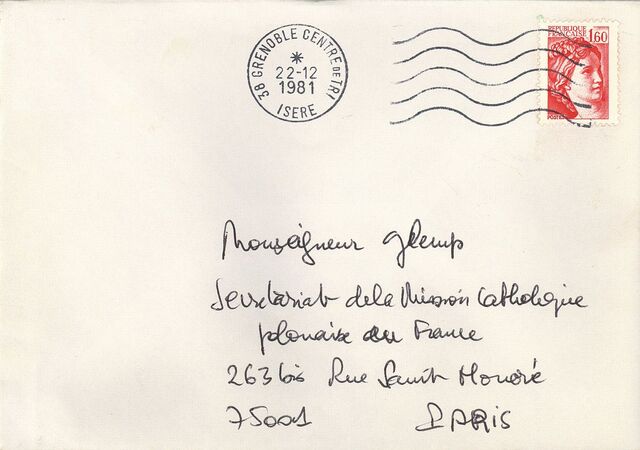 38 GRENOBLE CENTRE DE TRI
22-12
1981
ISERE
REPUBLIQUE
FRANÇAISE 1,60
Monseigneur Glemp
Secrétariat de la Mission Catholique
polonaise en France
263 bis Rue Saint Honoré
75001 PARIS